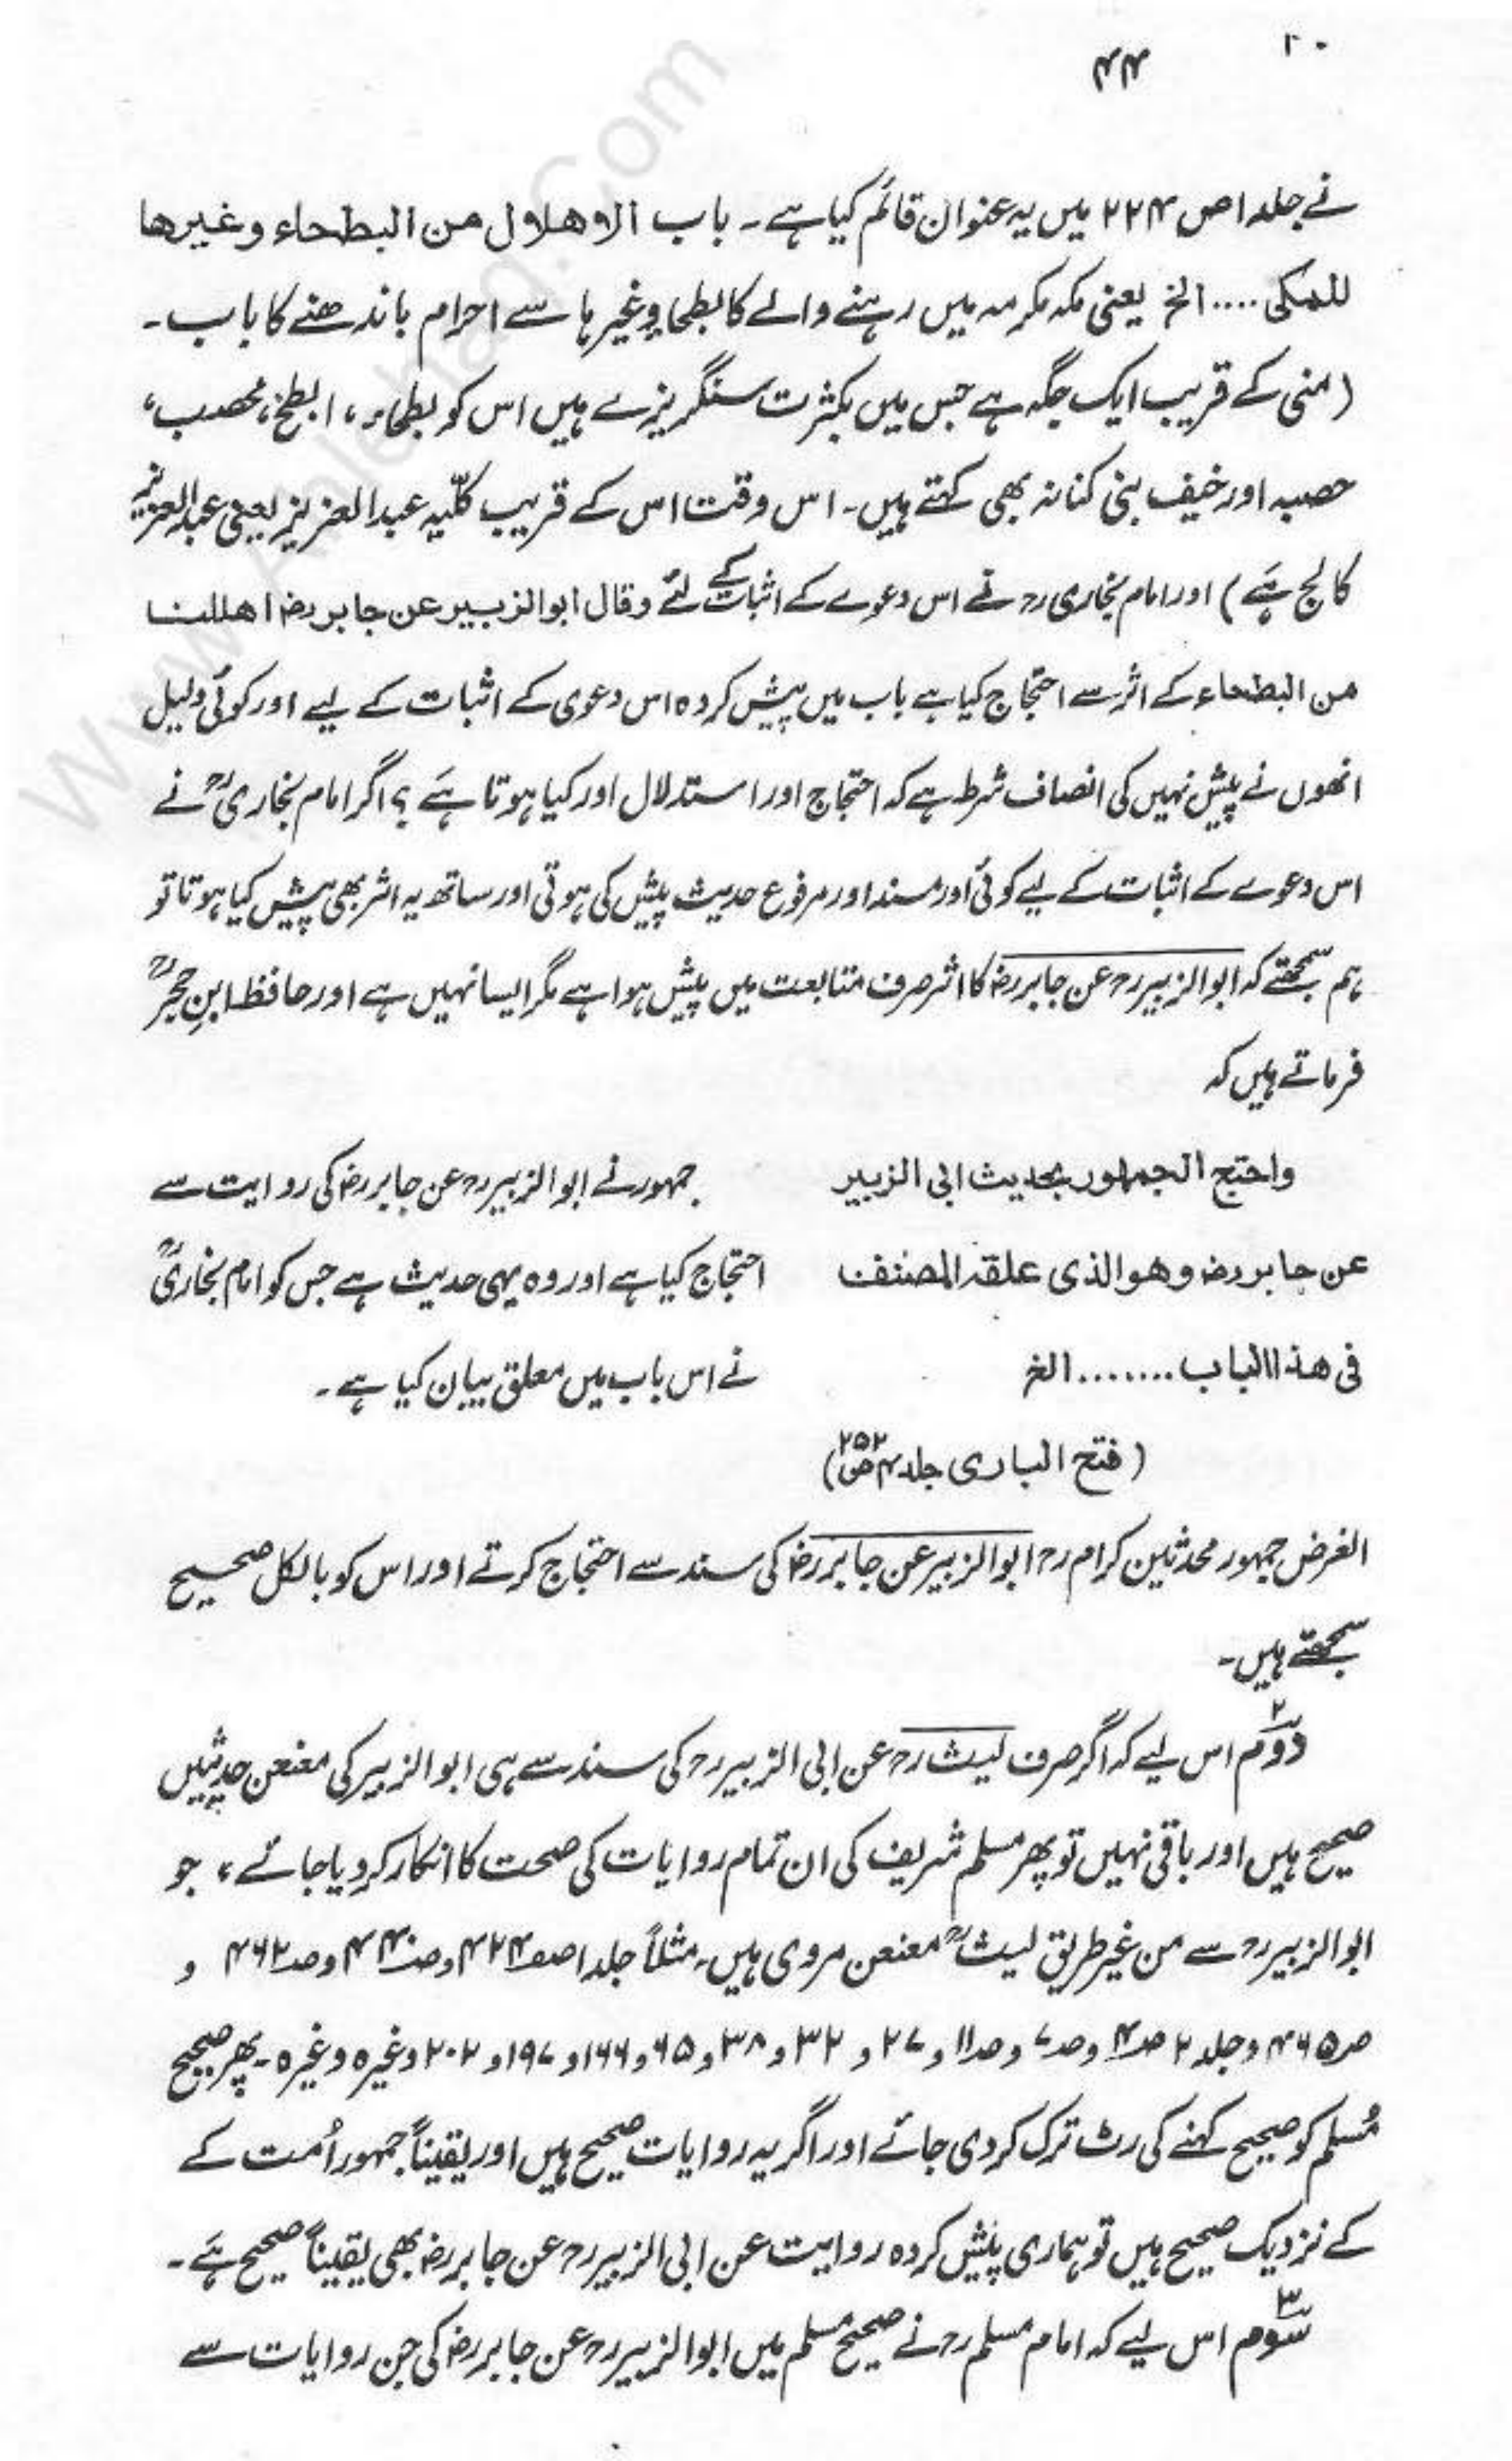 ۴۴
نے جلد ا ص ۲۲۴ میں یہ عنوان قائم کیا ہے۔ باب الاهلال من البطحاء وغيرها
للمكى .... الخ یعنی مکہ مکرمہ میں رہنے والے کا بطحا وغیرہا سے احرام باندھنے کا باب۔
(منی کے قریب ایک جگہ ہے جس میں بکثرت سنگریزے ہیں اس کو بطحاء، ابطح، محصب،
حصبہ اور خیف بنی کنانہ بھی کہتے ہیں۔ اس وقت اس کے قریب کلّیہ عبدالعزیز یعنی عبدالعزیز
کالج ہَے) اور امام بخاری رح نے اس دعوے کے اثبات کے لئے وقال ابوالزبیر عن جابر رض اهللنا
من البطحاء کے اثر سے احتجاج کیا ہے باب میں پیش کردہ اس دعوی کے اثبات کے لیے اور کوئی دلیل
انھوں نے پیش نہیں کی انصاف شرط ہے کہ احتجاج اور استدلال اور کیا ہوتا ہَے ؟ اگر امام بخاریؒ نے
اس دعوے کے اثبات کے لیے کوئی اور مسند اور مرفوع حدیث پیش کی ہوتی اور ساتھ یہ اثر بھی پیش کیا ہوتا تو
ہم سمجھتے کہ ابوالزبیر رح عن جابر رض کا اثر صرف متابعت میں پیش ہوا ہے مگر ایسا نہیں ہے اور حافظ ابنِ حجرؒ
فرماتے ہیں کہ
واحتج الجمهور بحديث ابی الزبير
عن جابر رض وهو الذى علقه المصنف
فى هذا الباب ........ الخ
(فتح البارى جلد ۴ ص ۲۵۲)
جمہور نے ابوالزبیر رح عن جابر رض کی روایت سے
احتجاج کیا ہے اور وہ یہی حدیث ہے جس کو امام بخاریؒ
نے اس باب میں معلق بیان کیا ہے۔
الغرض جمہور محدثین کرام رح ابوالزبیر عن جابر رض کی سند سے احتجاج کرتے اور اس کو بالکل صحیح
سمجھتے ہیں۔
دوّم ۲ اس لیے کہ اگر صرف لیث رح عن ابی الزبیر رح کی سند سے ہی ابوالزبیر کی معنعن حدیثیں
صحیح ہیں اور باقی نہیں تو پھر مسلم شریف کی ان تمام روایات کی صحت کا انکار کر دیا جائے، جو
ابوالزبیر رح سے من غیر طریق لیثؒ معنعن مروی ہیں۔ مثلاً جلد ا صـ ۴۲۴ و صـ ۴۴۰ و صـ ۴۶۲ و
صـ ۴۶۵ و جلد ۲ صـ ۴ و صـ ۷ و صـ ۱۱ و ۲۷ و ۳۲ و ۳۸ و ۶۵ و ۱۶۶ و ۱۹۷ و ۲۰۲ وغیرہ وغیرہ۔ پھر صحیح
مُسلم کو صحیح کہنے کی رٹ ترک کر دی جائے اور اگر یہ روایات صحیح ہیں اور یقیناً جمہور اُمت کے
کے نزدیک صحیح ہیں تو ہماری پیش کردہ روایت عن ابی الزبیر رح عن جابر رض بھی یقیناً صحیح ہَے۔
سّوم ۳ اس لیے کہ امام مسلم رح نے صحیح مسلم میں ابوالزبیر رح عن جابر رض کی جن روایات سے
www.Ahlehaq.Com